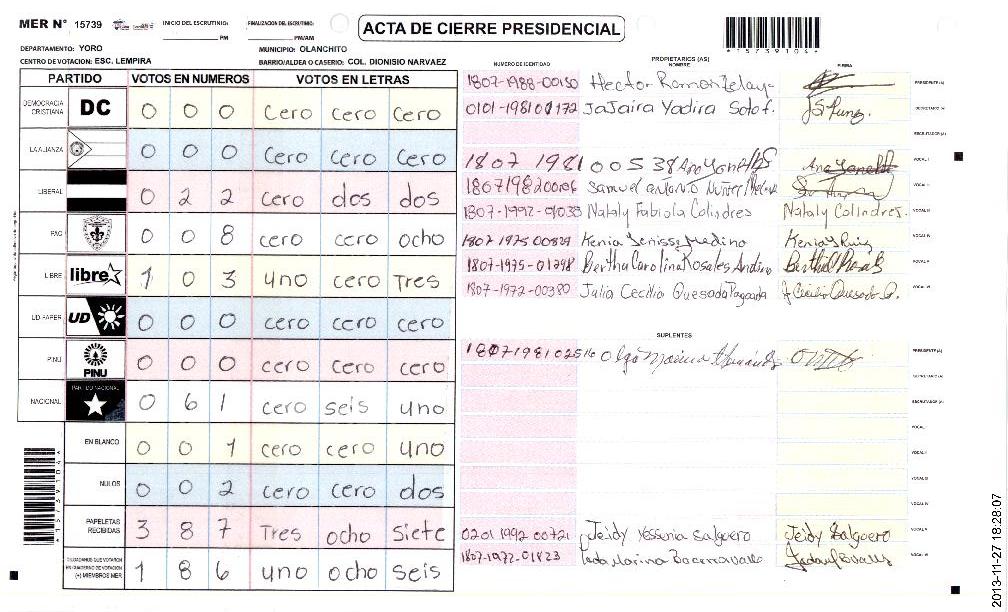 MER N° 15739
INICIO DEL ESCRUTINIO: PM
FINALIZACION DEL ESCRUTINIO: PM/AM
ACTA DE CIERRE PRESIDENCIAL
*15739104*
DEPARTAMENTO: YORO
MUNICIPIO: OLANCHITO
CENTRO DE VOTACION: ESC. LEMPIRA
BARRIO/ALDEA O CASERIO: COL. DIONISIO NARVAEZ
PARTIDO VOTOS EN NUMEROS VOTOS EN LETRAS
DEMOCRACIA CRISTIANA DC 0 0 0 cero cero cero
LA ALIANZA 0 0 0 cero cero cero
LIBERAL 0 2 2 cero dos dos
PAC 0 0 8 cero cero ocho
LIBRE libre 1 0 3 uno cero Tres
UD FAPER UD 0 0 0 cero cero cero
PINU PINU 0 0 0 cero cero cero
NACIONAL PARTIDO NACIONAL 0 6 1 cero seis uno
EN BLANCO 0 0 1 cero cero uno
NULOS 0 0 2 cero cero dos
PAPELETAS RECIBIDAS 3 8 7 Tres ocho siete
CIUDADANOS QUE VOTARON EN CUADERNO DE VOTACION (+) MIEMBROS MER 1 8 6 uno ocho seis
*15739104*
NUMERO DE IDENTIDAD PROPIETARIOS (AS) NOMBRE FIRMA
1807-1988-00150 Hector Ramon Zelaya PRESIDENTE (A)
0101-1981 01172 JaJaira Yadira Soto f. SECRETARIO (A)
ESCRUTADOR (A)
1807 1981 00538 VOCAL I
1807198200106 Samuel antonio Nuñez VOCAL II
1807-1992-01038 Nataly Fabiola Colindres Nataly Colindres. VOCAL III
1807 1975 00829 Kenia Yenisse Medina VOCAL IV
1807-1975-01298 Bertha Carolina Rosales Andino VOCAL V
1807-1972-00380 Julia Cecilia Quesada Pagoada VOCAL VI
SUPLENTES
Olga Marina PRESIDENTE (A)
SECRETARIO (A)
ESCRUTADOR (A)
VOCAL I
VOCAL II
VOCAL III
VOCAL IV
0201 1992 00721 Jeidy Yessenia Salguero Jeidy Salguero VOCAL V
1807-1977-01823 VOCAL VI
2013-11-27 18:28:07